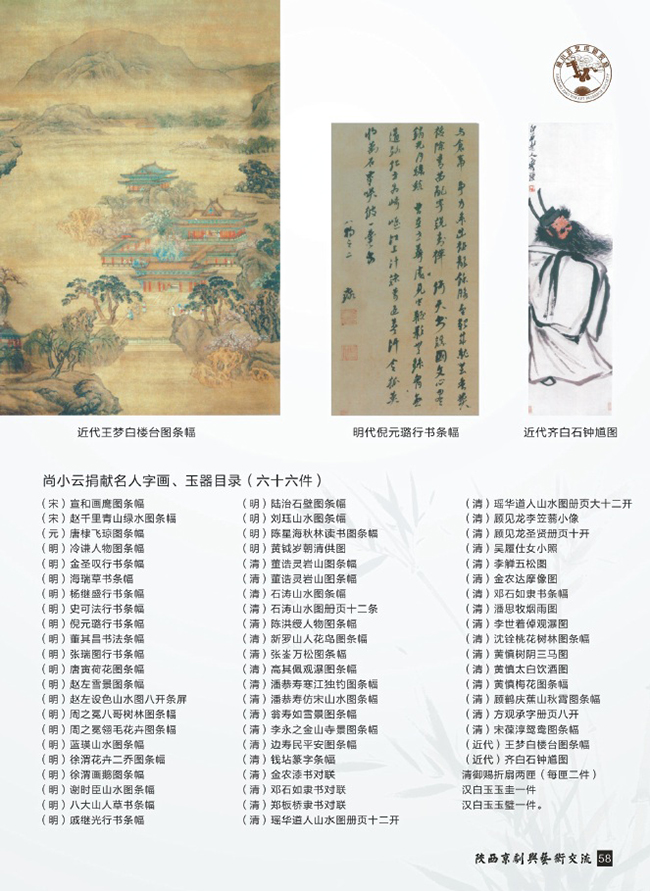 近代王梦白楼台图条幅
明代倪元璐行书条幅
近代齐白石钟馗图
尚小云捐献名人字画、玉器目录（六十六件）
（宋）宣和画鹰图条幅
（宋）赵千里青山绿水图条幅
（元）唐棣飞琼图条幅
（明）冷谦人物图条幅
（明）金圣叹行书条幅
（明）海瑞草书条幅
（明）杨继盛行书条幅
（明）史可法行书条幅
（明）倪元璐行书条幅
（明）董其昌书法条幅
（明）张瑞图行书条幅
（明）唐寅荷花图条幅
（明）赵左雪景图条幅
（明）赵左设色山水图八开条屏
（明）周之冕八哥树林图条幅
（明）周之冕翎毛花卉图条幅
（明）蓝瑛山水图条幅
（明）徐渭花卉二乔图条幅
（明）徐渭画鹅图条幅
（明）谢时臣山水图条幅
（明）八大山人草书条幅
（明）戚继光行书条幅
（明）陆治石壁图条幅
（明）刘珏山水图条幅
（明）陈星海秋林读书图条幅
（明）黄钺岁朝清供图
（清）董诰灵岩山图条幅
（清）董诰灵岩山图条幅
（清）石涛山水图条幅
（清）石涛山水图册页十二条
（清）陈洪绶人物图条幅
（清）新罗山人花鸟图条幅
（清）张崟万松图条幅
（清）高其佩观瀑图条幅
（清）潘恭寿寒江独钓图条幅
（清）潘恭寿仿宋山水图条幅
（清）翁寿如雪景图条幅
（清）李永之金山寺景图条幅
（清）边寿民平安图条幅
（清）钱坫篆字条幅
（清）金农漆书对联
（清）邓石如隶书对联
（清）郑板桥隶书对联
（清）瑶华道人山水图册页十二开
（清）瑶华道人山水图册页大十二开
（清）顾见龙李笠翁小像
（清）顾见龙圣贤册页十开
（清）吴履仕女小照
（清）李觯五松图
（清）金农达摩像图
（清）邓石如隶书条幅
（清）潘思牧烟雨图
（清）李世着倬观瀑图
（清）沈铨桃花树林图条幅
（清）黄慎树阴三马图
（清）黄慎太白饮酒图
（清）黄慎梅花图条幅
（清）顾鹤庆蕉山秋霄图条幅
（清）方观承字册页八开
（清）宋葆淳鸳鸯图条幅
（近代）王梦白楼台图条幅
（近代）齐白石钟馗图
清御赐折扇两匣（每匣二件）
汉白玉玉圭一件
汉白玉玉璧一件。
陕西京剧与艺术交流 58